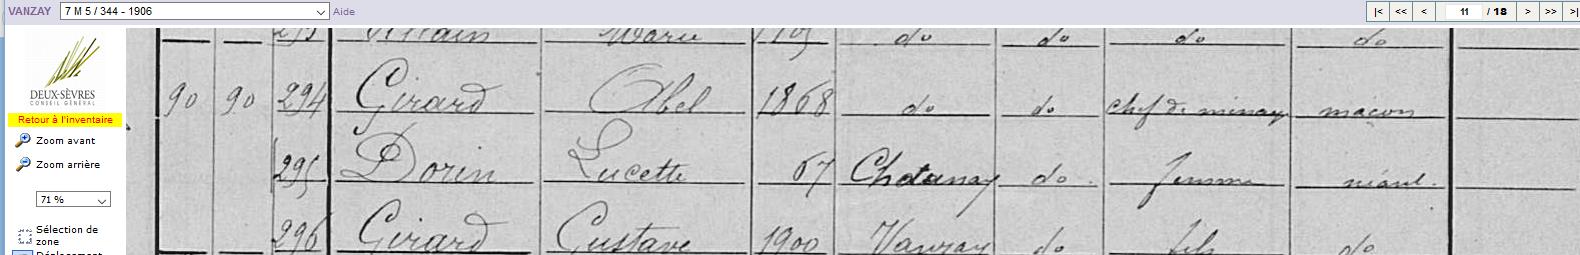 VANZAY 7 M 5 / 344 - 1906 Aide |< << < 11 / 18 > >> >|
293 Marie do do do do
DEUX-SÈVRES
CONSEIL GÉNÉRAL
Retour à l'inventaire
Zoom avant
Zoom arrière
71 %
Sélection de
zone
Déplacement
90 90 294 Girard Abel 1868 do do chef de ménage maçon
295 Dorin Lucette 67 Chaunay do femme néant.
296 Girard Gustave 1900 Vanzay do fils do